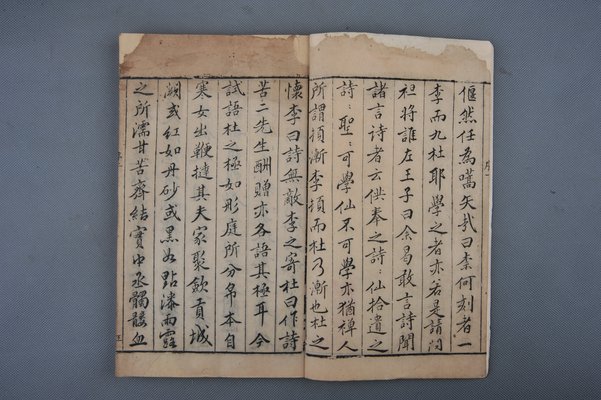 偃然任為嚆矢哉曰柰何刻者一
李而九杜耶學之者亦若是請问
袒将誰左王子曰余曷敢言詩聞
諸言诗者云供奉之詩:仙拾遺之
詩:聖:可學仙不可學亦猶禅人
所謂頓漸李頓而杜乃漸也杜之
懷李曰詩無敵李之寄杜曰作詩
苦二先生酬赠亦各語其極耳今
試語杜之極如彤庭所分帛本自
寒女出鞭撻其夫家聚斂貢城
闕或紅如丹砂或黑如點漆雨露
之所濡甘苦齊結實中丞髑髏血